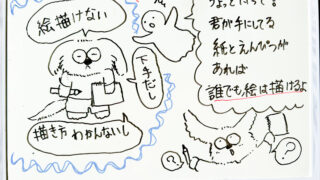 絵描けない
下手だし
描き方 わかんないし
君が手にしてる
紙とえんぴつが
あれば
誰でも絵は描けるよ
?
?